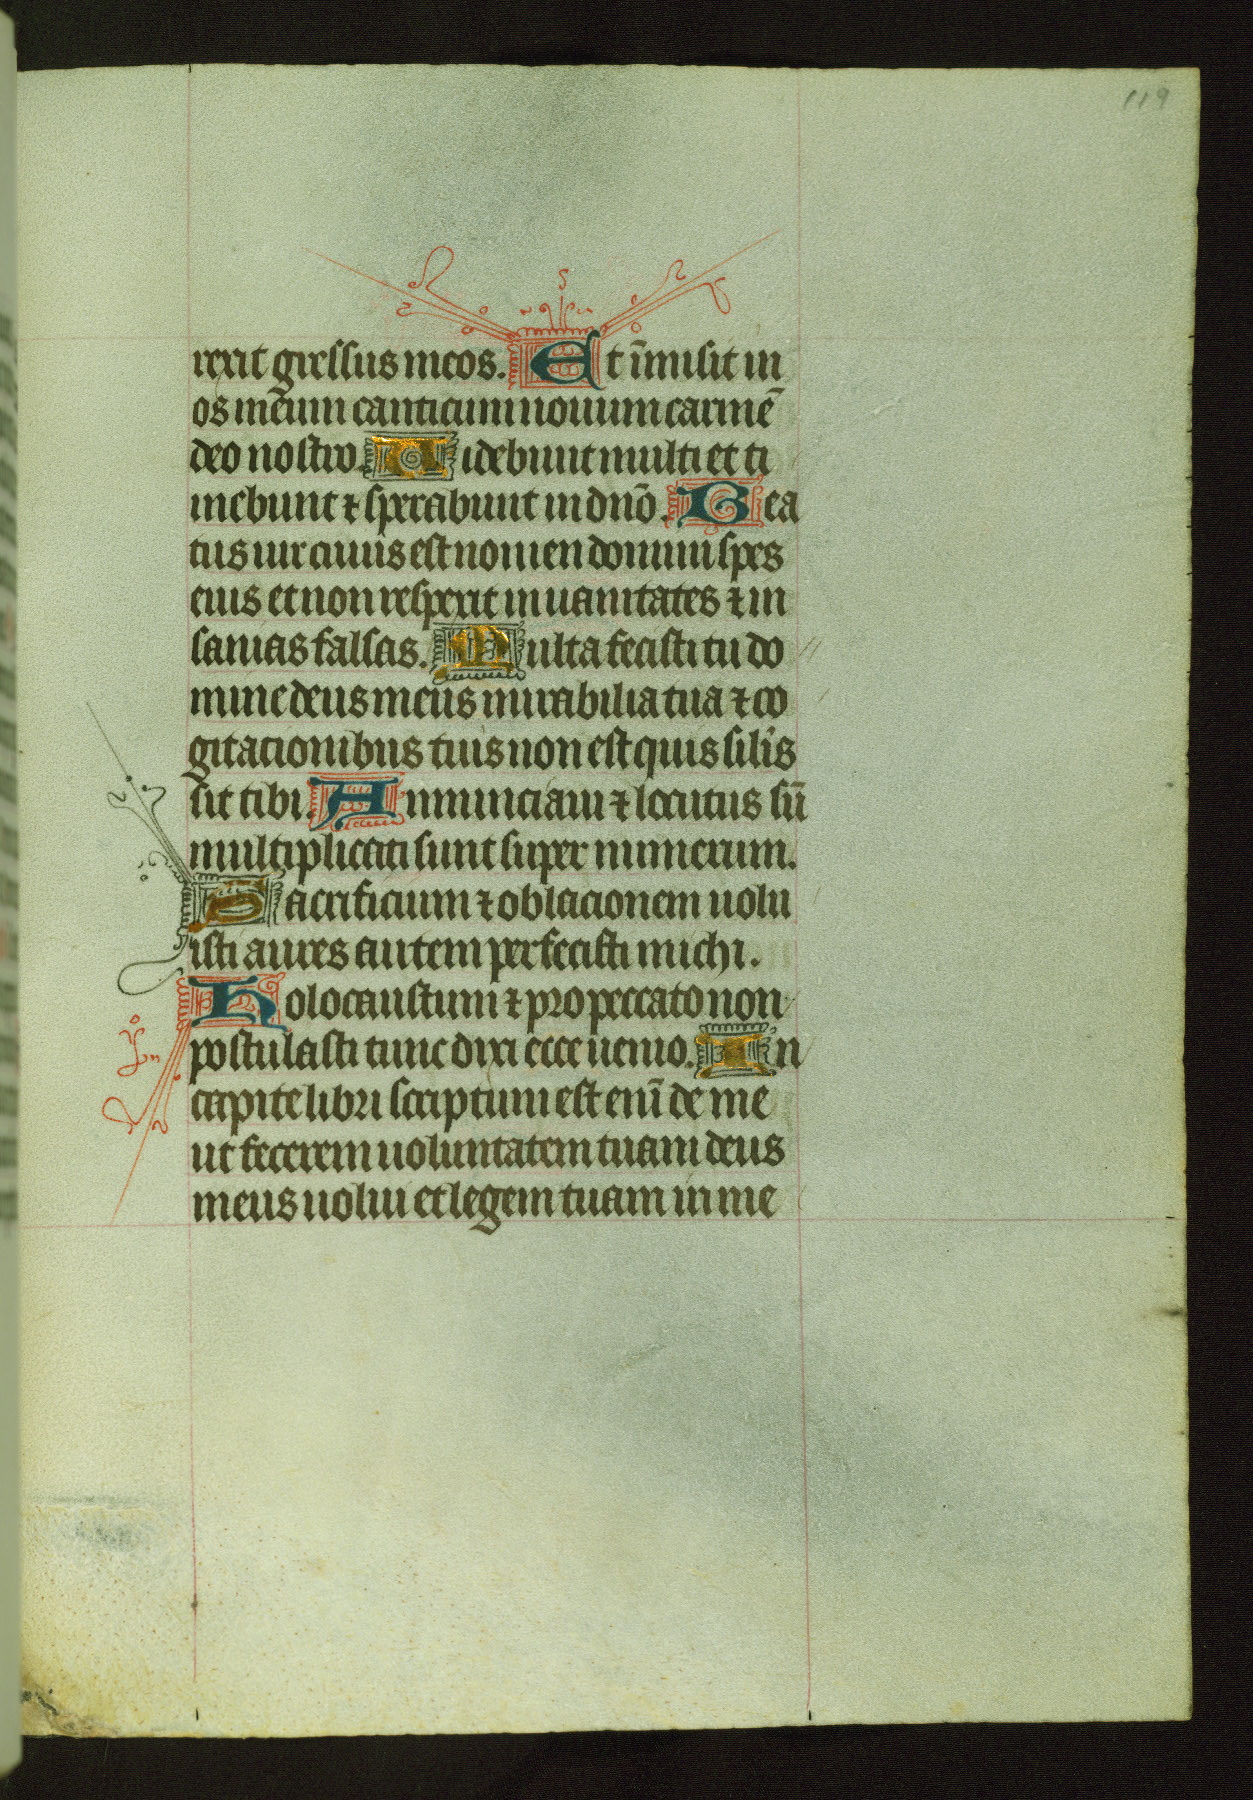 119
rexit gressus meos. Et īmisit in
os meum canticum nouum carmē
deo nostro. Uidebunt multi et ti
mebunt ⁊ sperabunt in dnō. Bea
tus uir cuius est nomen domini spes
eius et non respexit in uanitates ⁊ in
sanias falsas. Multa fecisti tu do
mine deus meus mirabilia tua ⁊ co
gitationibus tuis non est quis silis
sit tibi. Annunciaui ⁊ locutus sū
multiplicati sunt super numerum.
Sacrificium ⁊ oblacionem nolu
isti aures autem perfecisti michi.
Holocaustum ⁊ pro peccato non
postulasti tunc dixi ecce uenio. In
capite libri scriptum est enī de me
ut facerem uoluntatem tuam deus
meus uolui et legem tuam in me